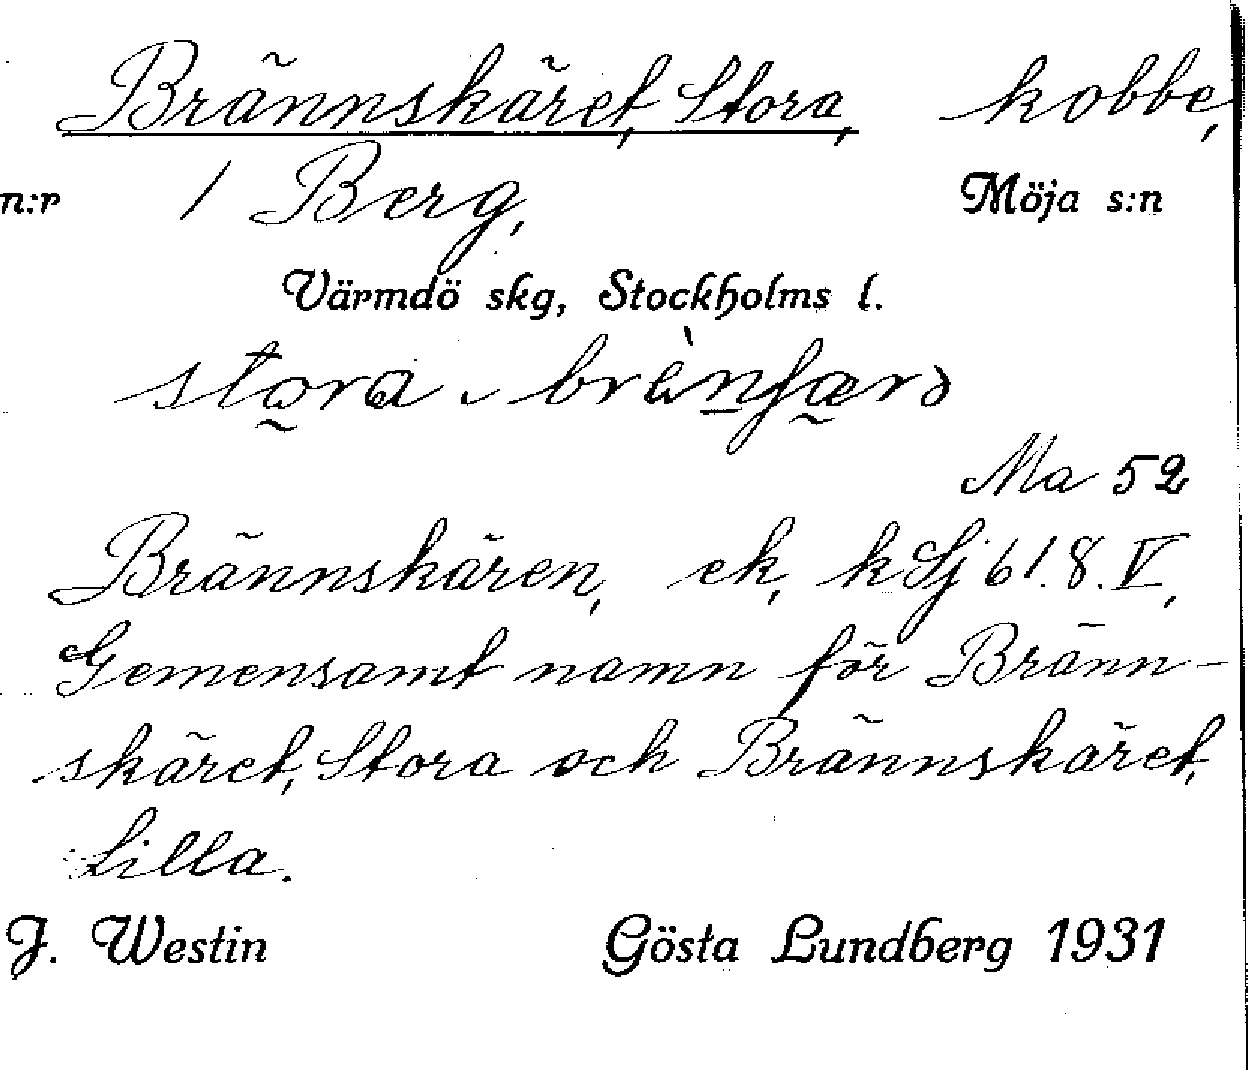 Brännskäret, Stora, kobbe,
n:r 1 Berg, Möja s:n
Värmdö skg, Stockholms l.
stora
Ma 52
Brännskären, ek, kSj 61.8.V,
Gemensamt namn för Bränn-
skäret, Stora och Brännskäret,
Lilla.
J. Westin Gösta Lundberg 1931